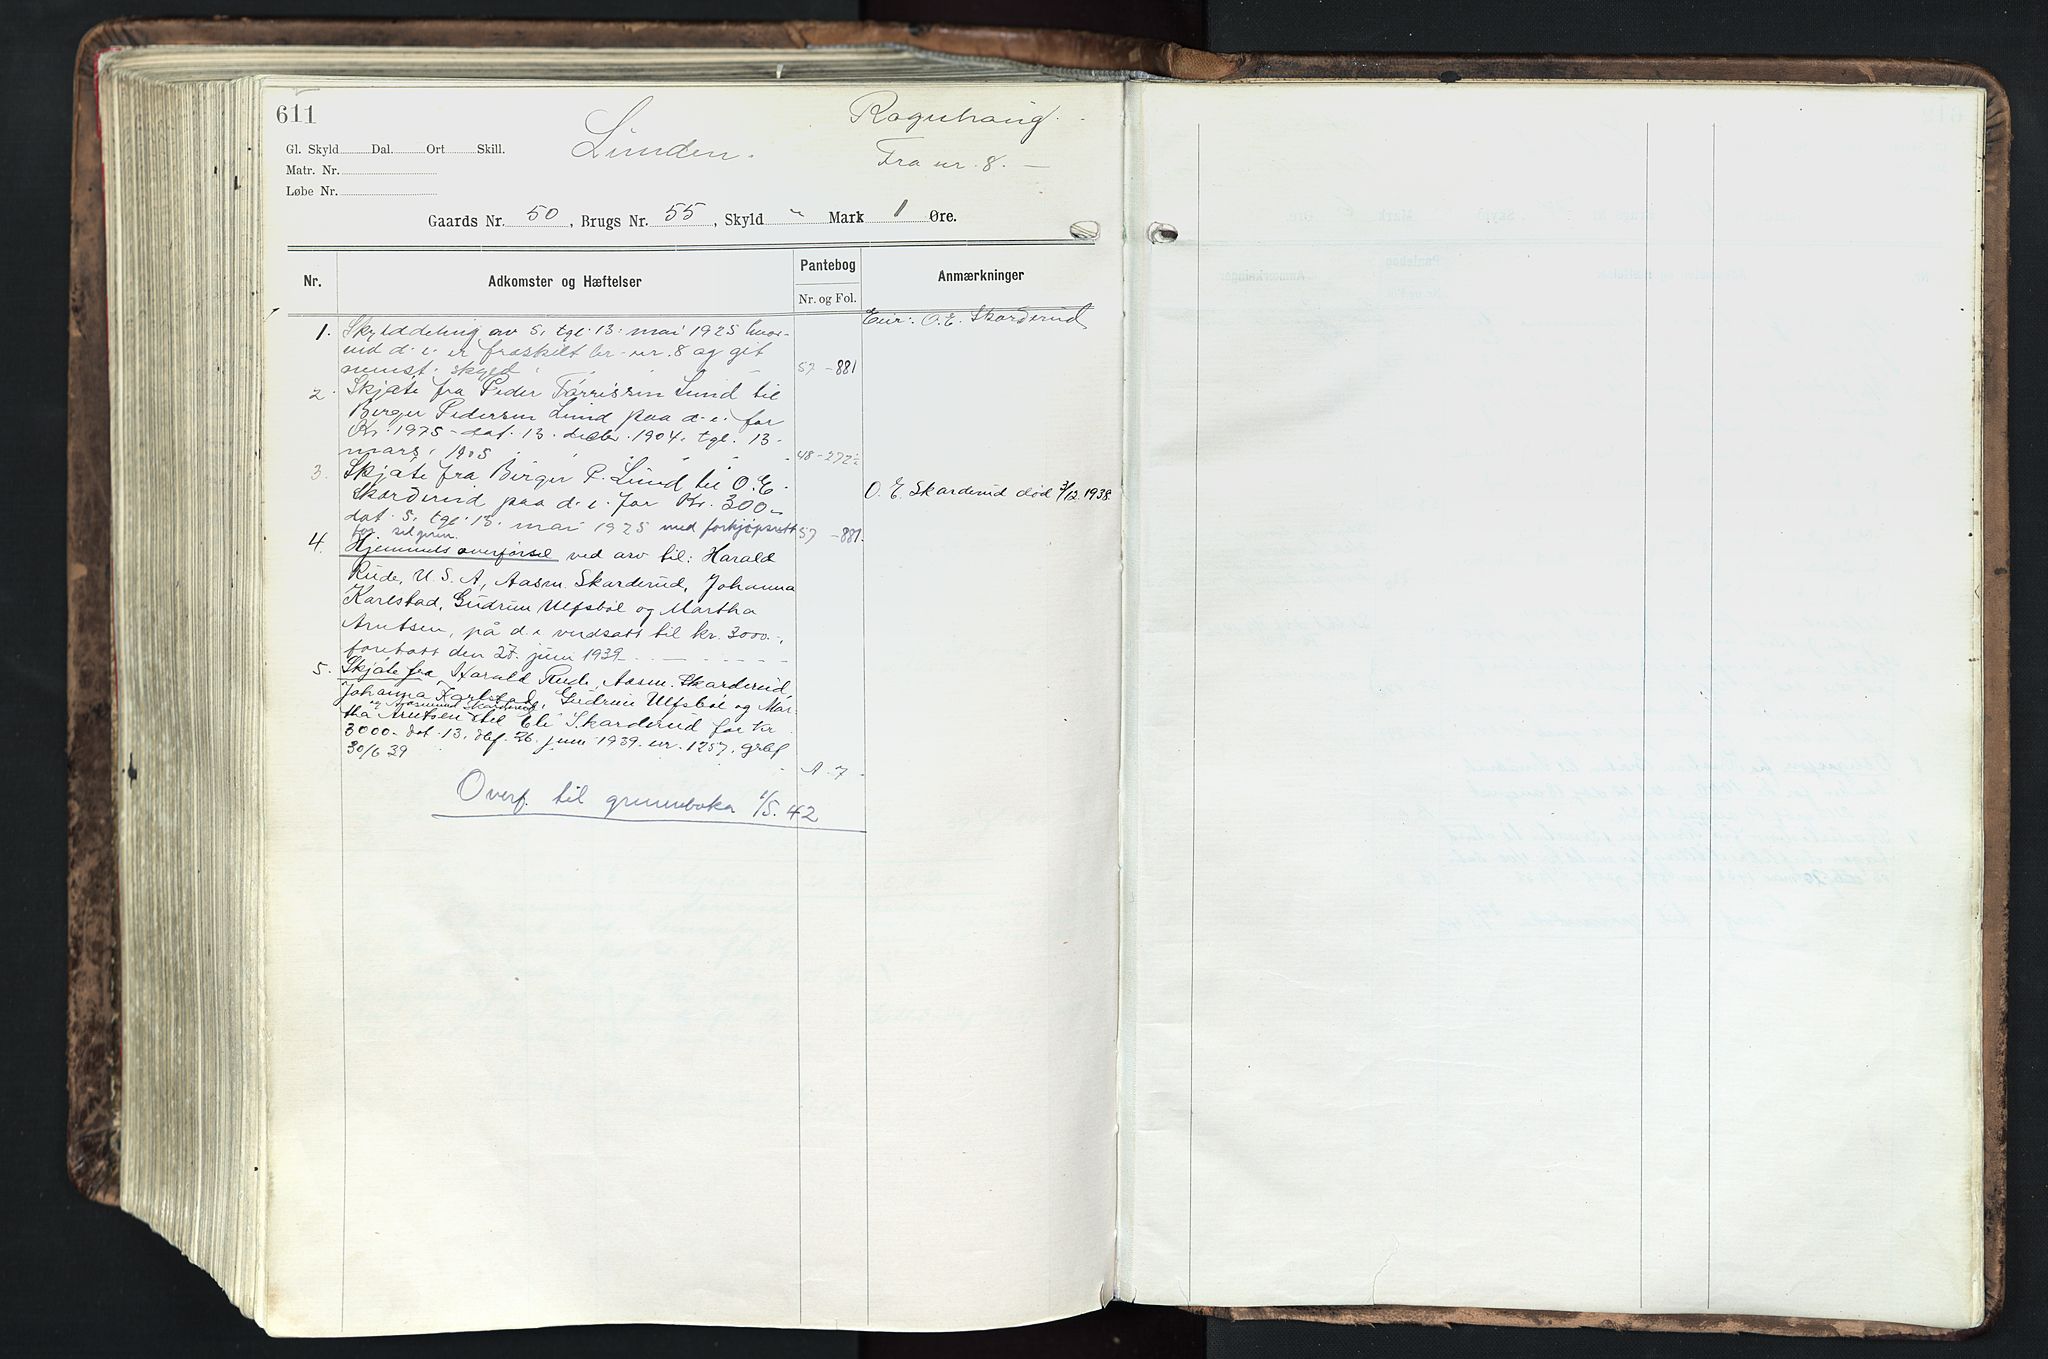 611
Lunden.
Fra nr. 8. —
Gl. Skyld Dal. Ort Skill.
Matr. Nr.
Løbe Nr.
Gaards Nr. 50, Brugs Nr. 55, Skyld " Mark 1 Øre.
Nr. Adkomster og Hæftelser Pantebog Anmærkninger
Nr. og Fol.
Eier: O. E. Skarderud
1. Skylddeling av 5, tgl. 13. mai 1925 hvor-
ved d. e. er fraskilt br. nr. 8 og git
minst. skyld 57 - 881
2. Skjøte fra Peder Tørrissen Lund til
Birger Pedersen Lund paa d. e. for
Kr. 1975 - dat. 13. decbr. 1904, tgl. 13.
mars 1905 48 - 272
3. Skjøte fra Birger P. Lund til O. E.
Skarderud paa d. e. for Kr. 300.-
O. E. Skarderud død 3/12.1938.
dat. 5, tgl. 13. mai 1925 med forkjøpsrett 57 - 881.
for selgeren.
4. Hjemmelsoverførsel ved arv til: Harald
Rude, U. S. A, Aasm. Skarderud, Johanna
Karlstad, Gudrun Ulfsbøl og Martha
Arntsen, på d. e. verdsatt til kr. 3000.-,
foretatt den 27. juni 1939
5. Skjøte fra Harald Rude, Aasm. Skarderud,
Johanna Karlstad, Gudrun Ulfsbøl og Mar-
og Aasmund Skarderud
tha Arntsen til Eli Skarderud for kr.
3000.- dat. 13, dbf. 26. juni 1939. nr. 1257. grbf
30/6 39 A. 7
Overf. til grunnboka 1/5. 42